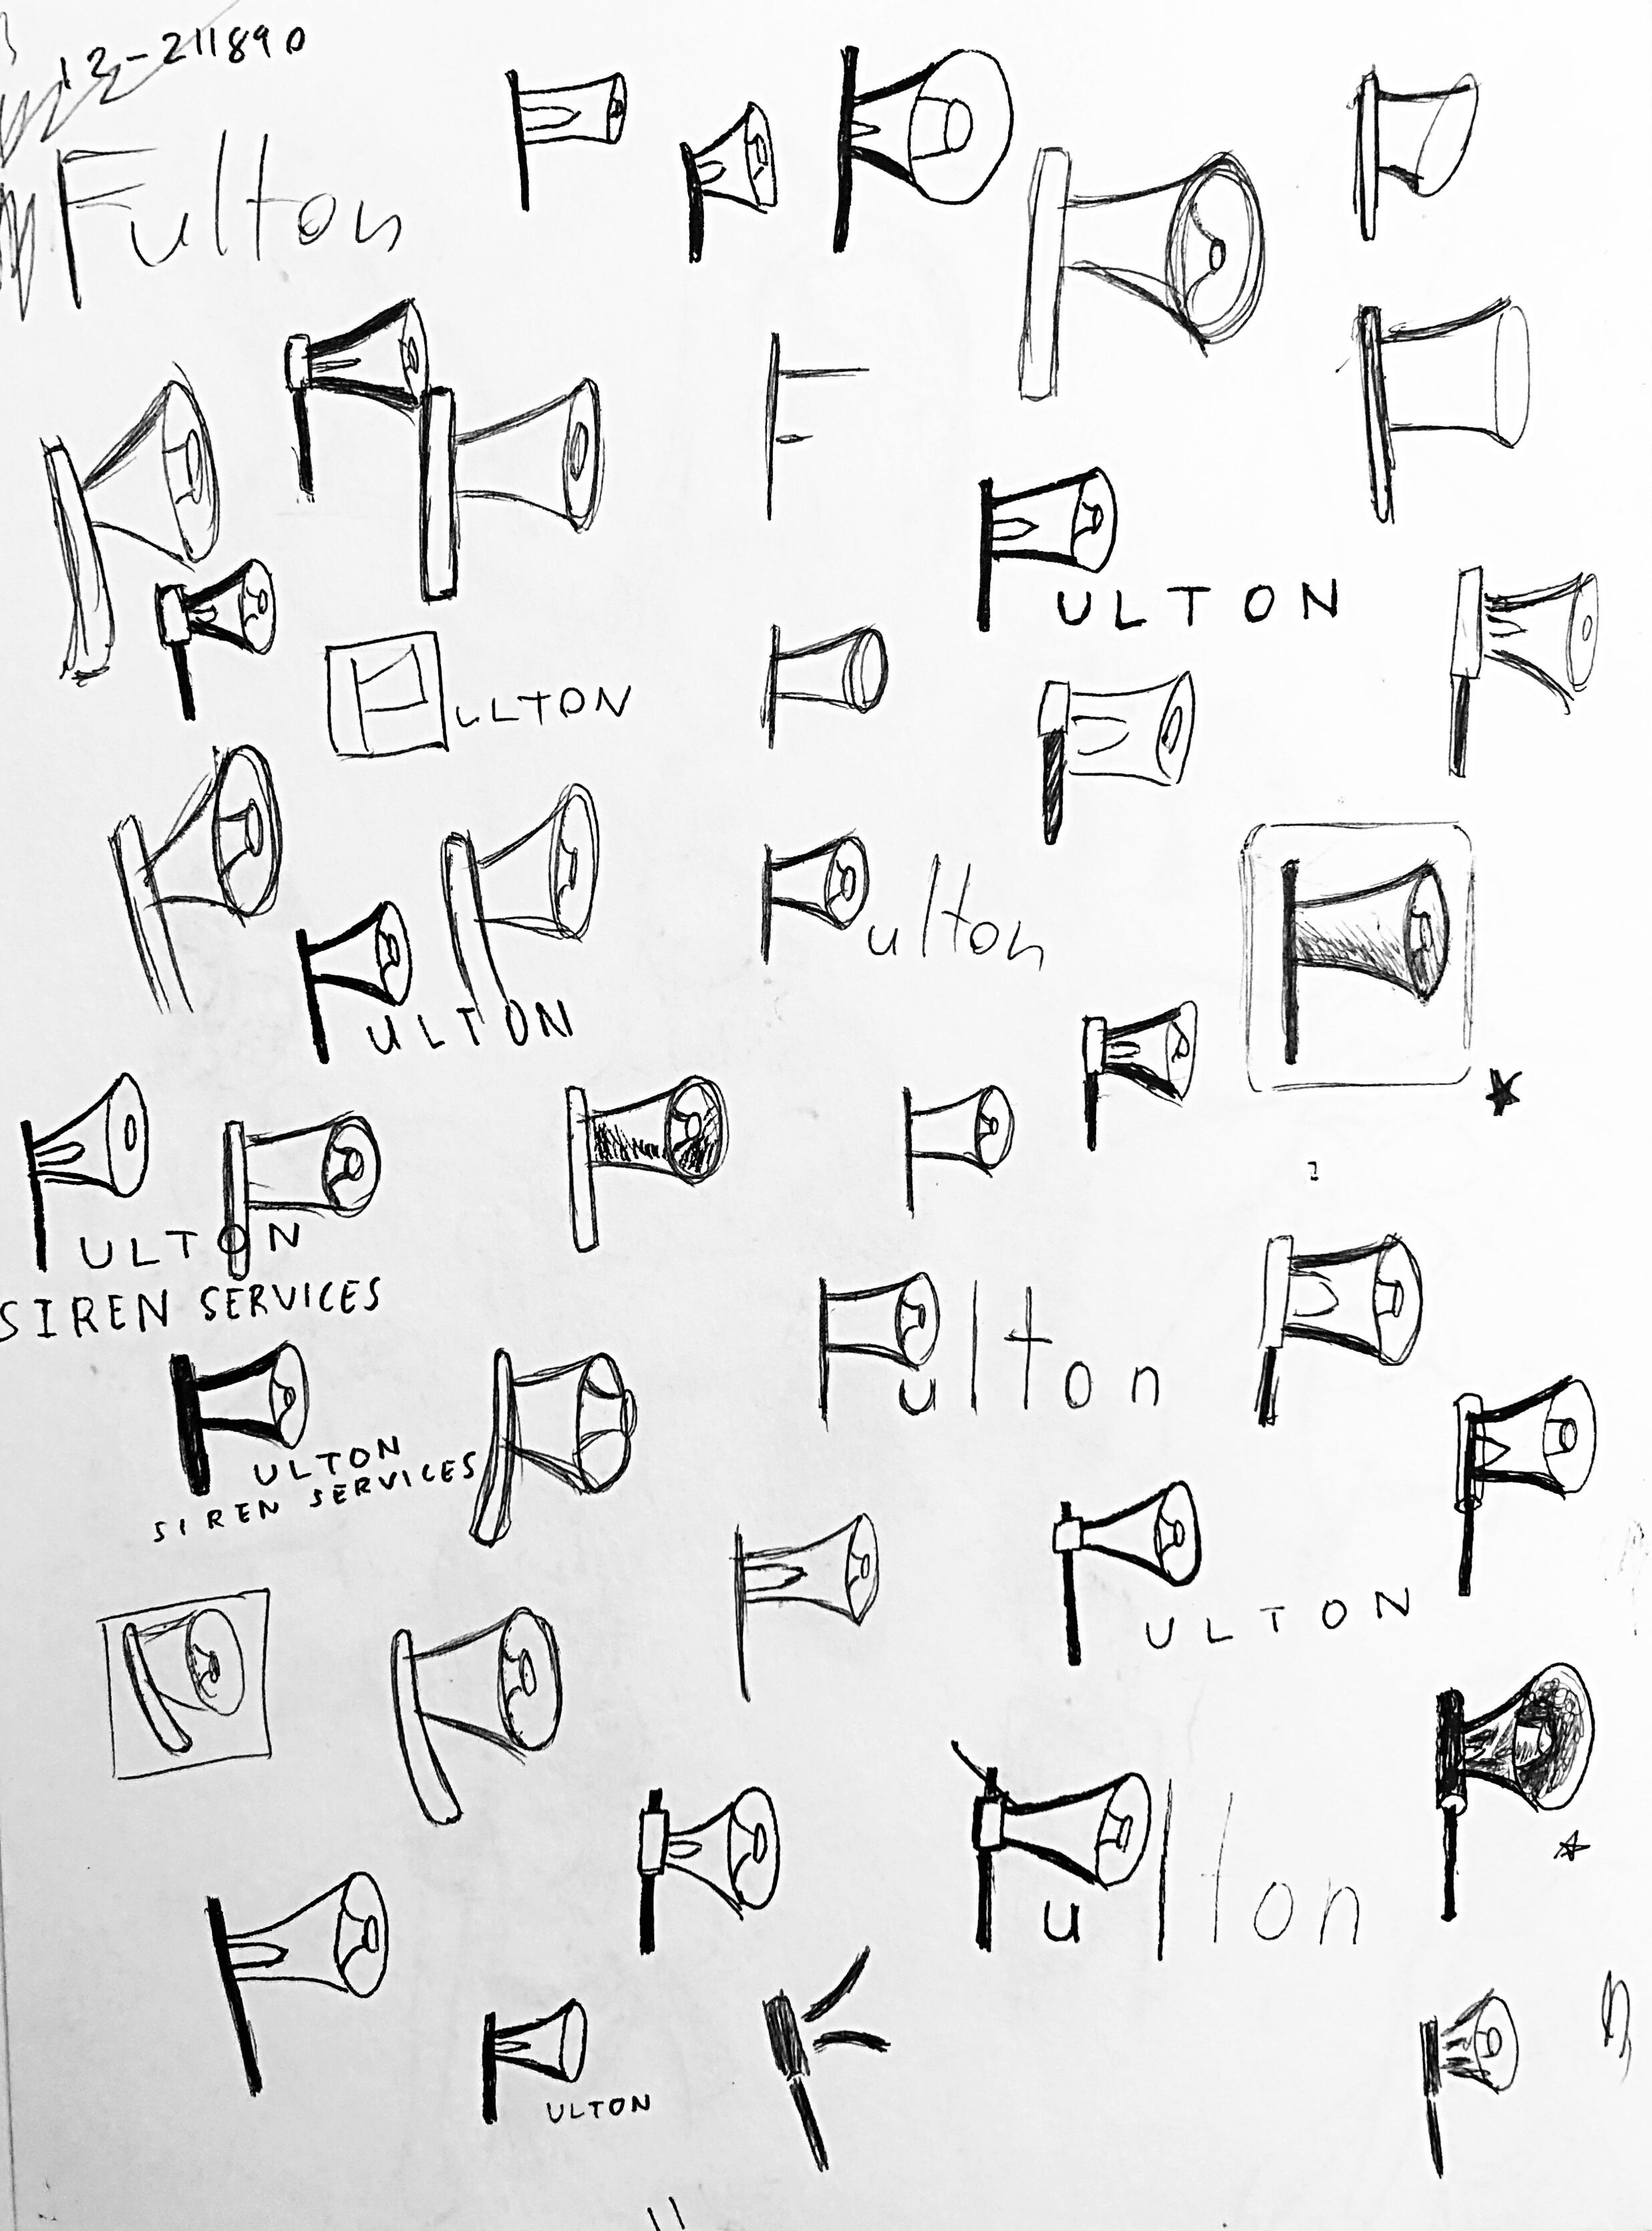 12-211890
Fulton
ULTON
ULTON
ulton
ULTON
ULTON
SIREN SERVICES
ulton
ULTON
SIREN SERVICES
ULTON
ulton
ULTON